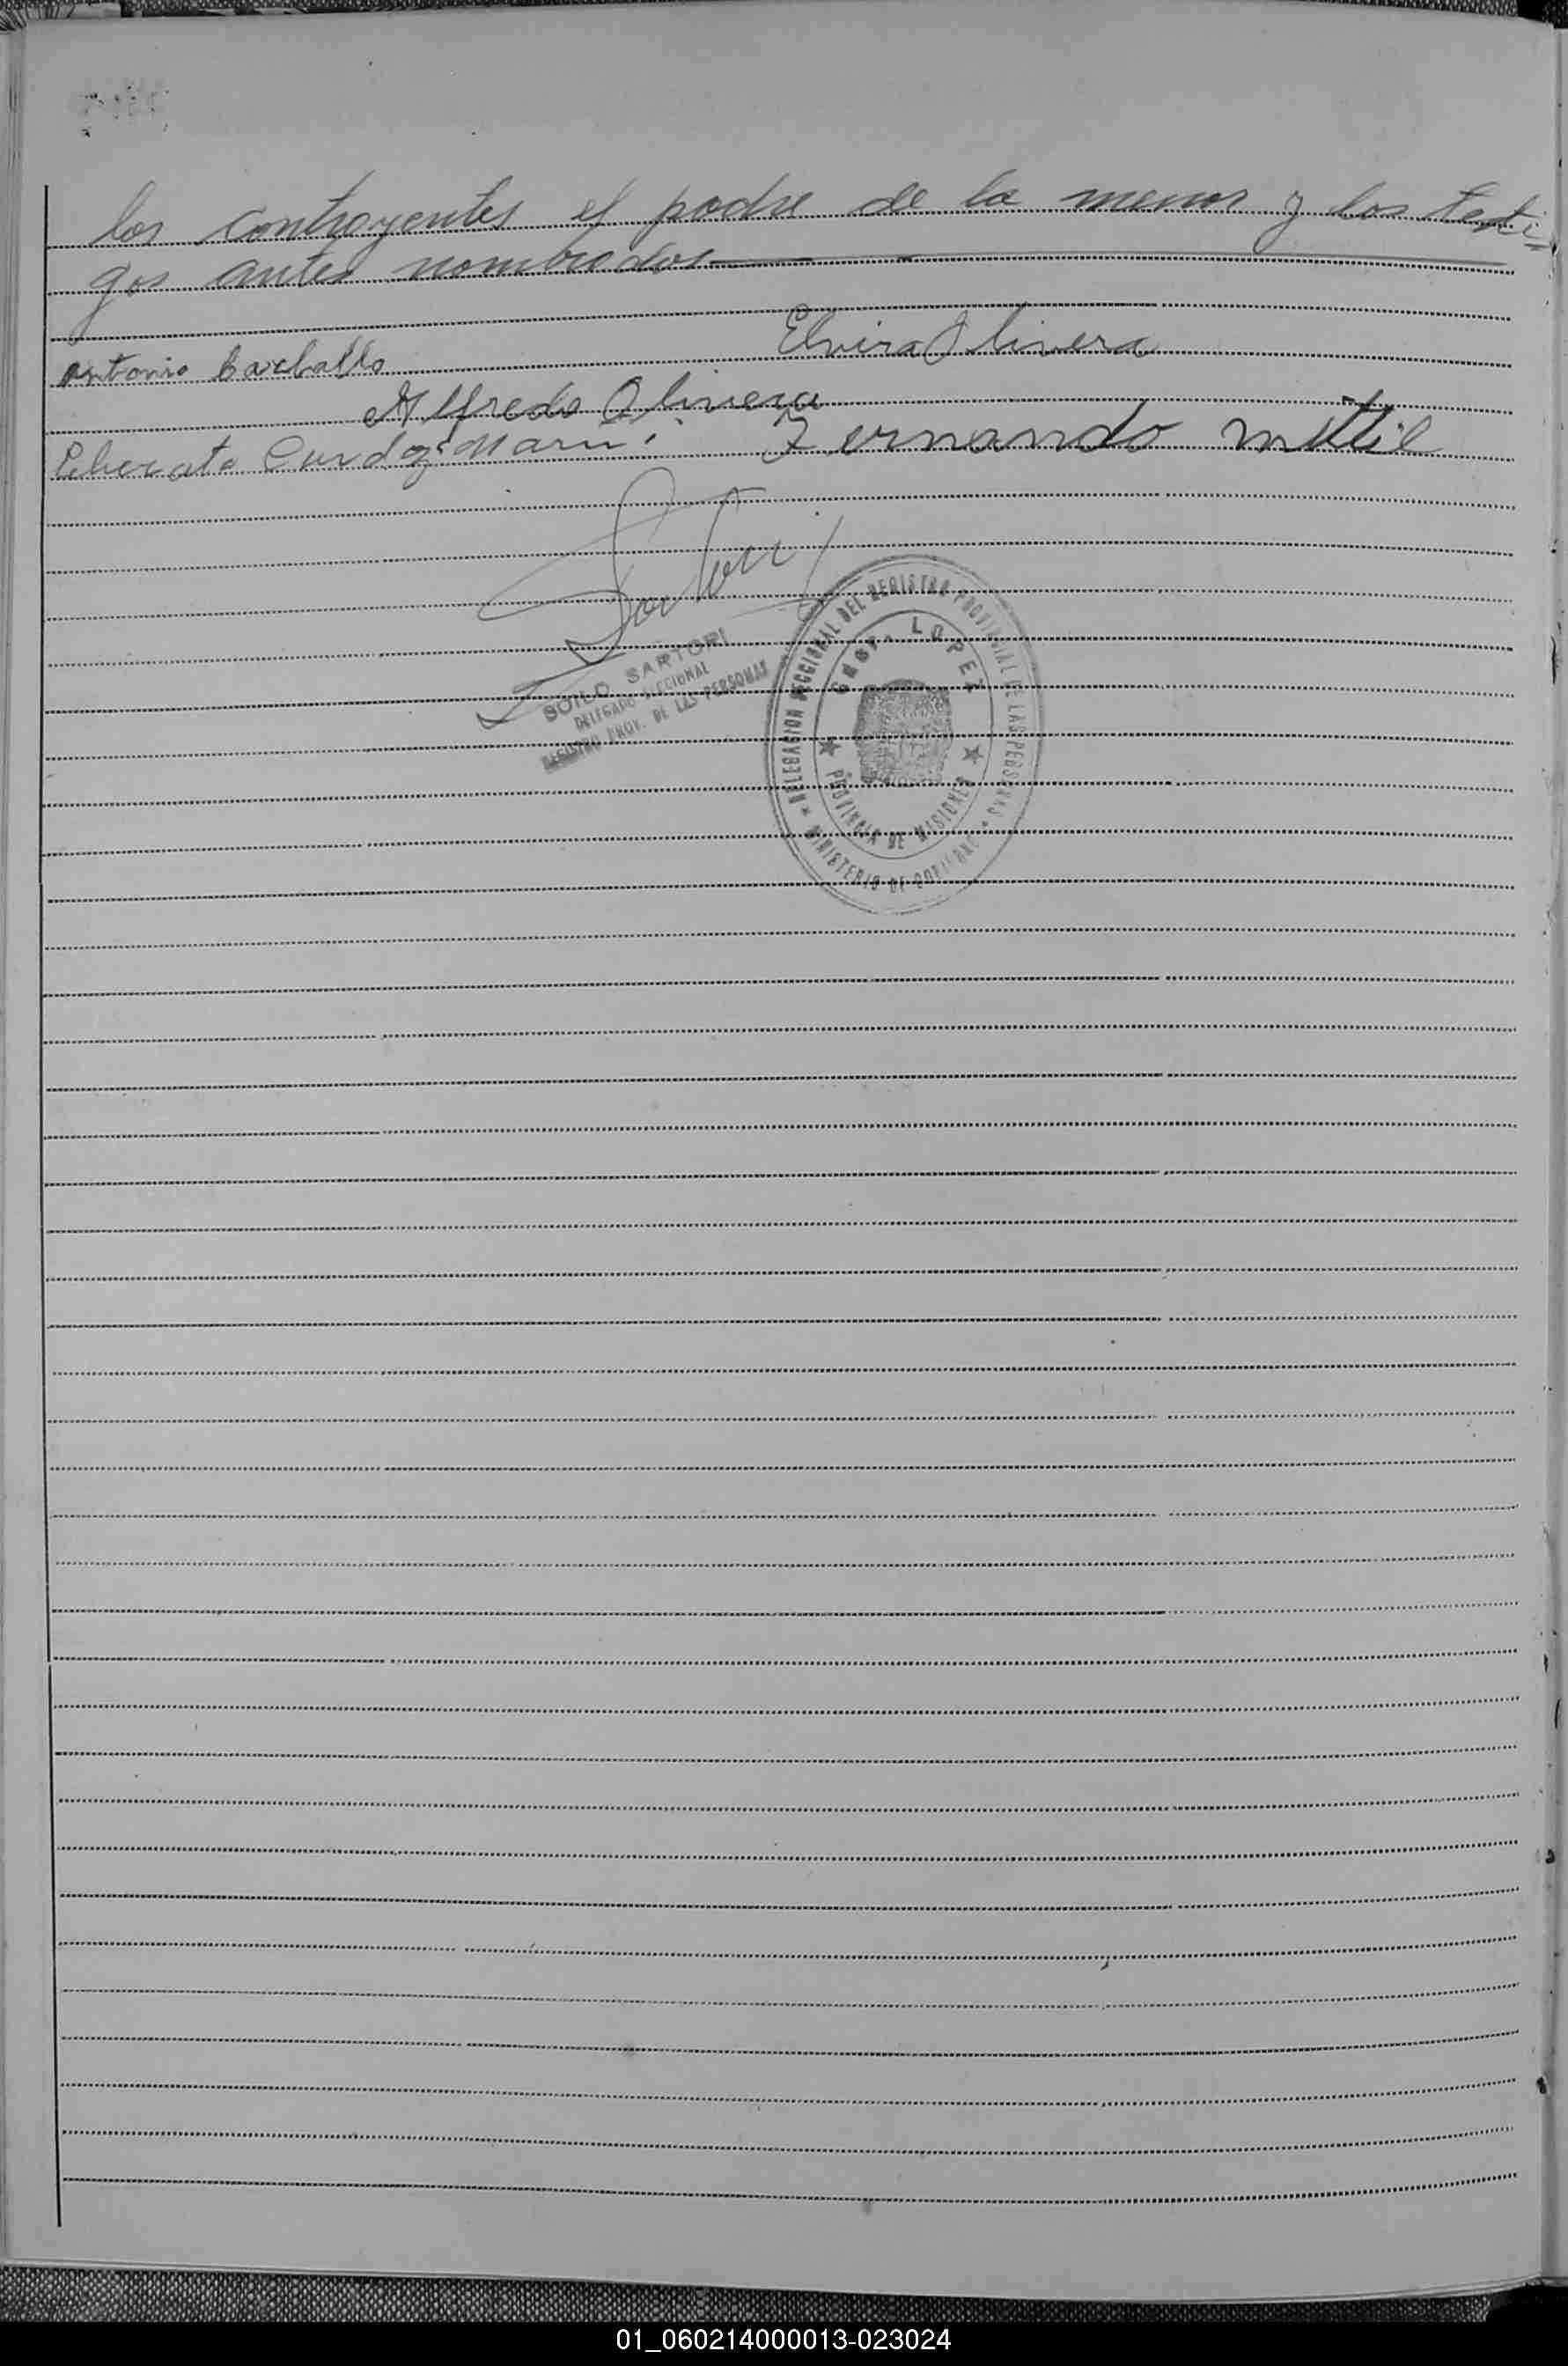 los contrayentes el padre de la menor y los testi=
gos antes nombrados
Elvira Olivera
Antonio Carballo
Alfredo Olivera
Fernando
Sartori
SOILO SARTORI
DELEGADO SECCIONAL
REGISTRO PROV. DE LAS PERSONAS
DELEGACION SECCIONAL DEL REGISTRO PROVINCIAL DE LAS PERSONAS
GBOR. LOPEZ
PROVINCIA DE MISIONES
MINISTERIO DE GOBIERNO
01_060214000013-023024